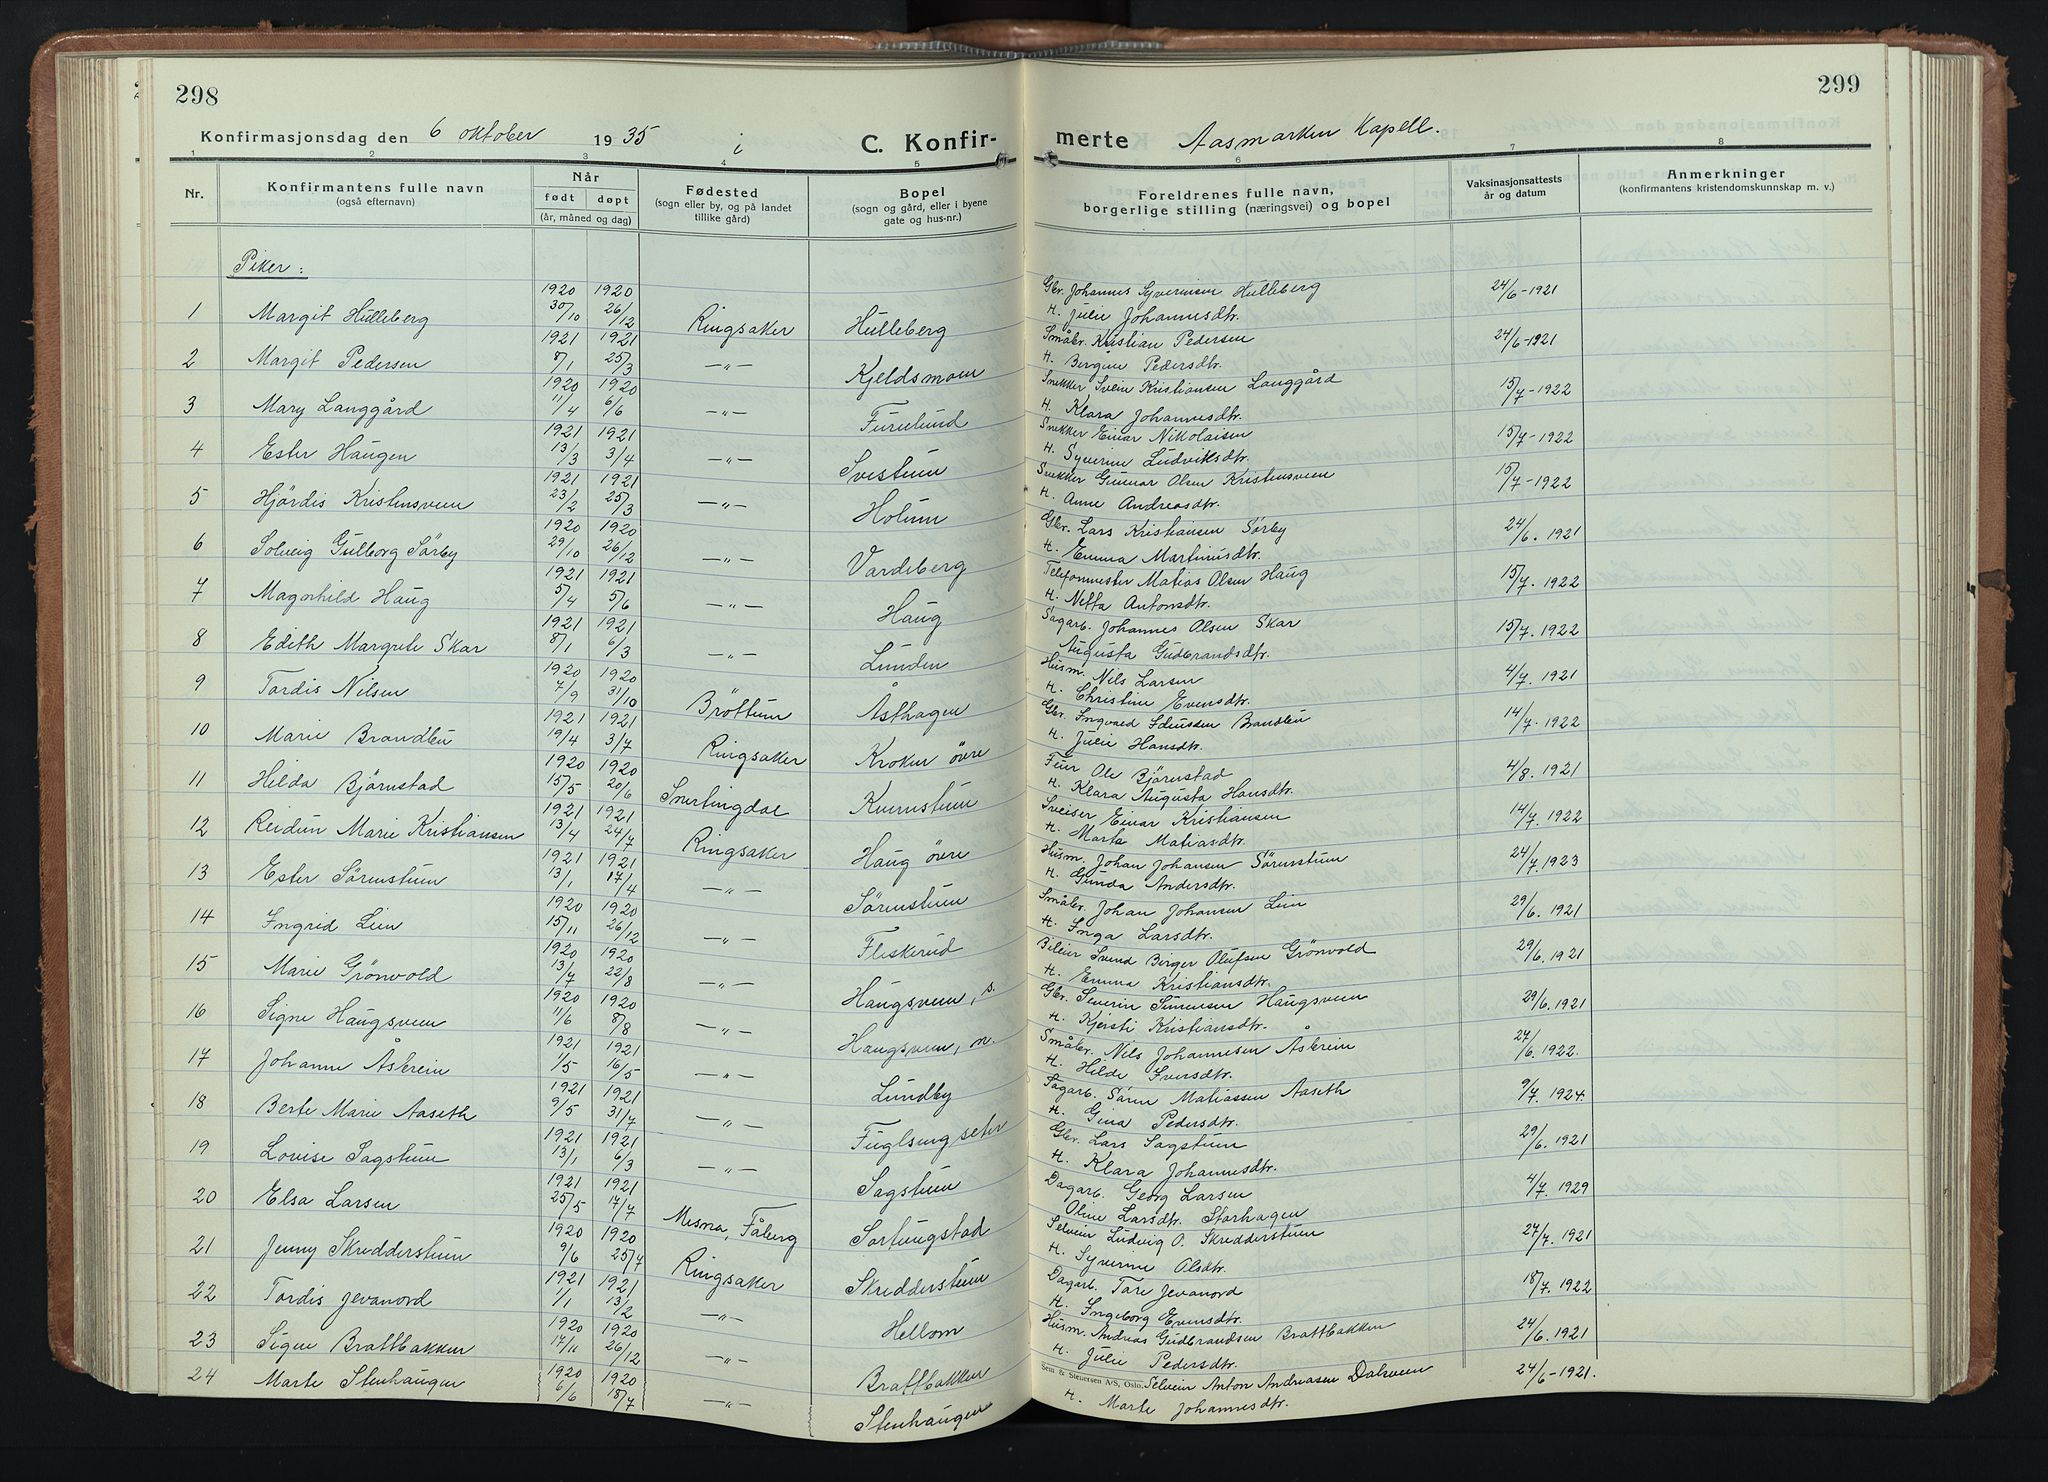 298
299
Konfirmasjonsdag den 6 oktober 1935 i C. Konfirmerte Aasmarken Kapell.
1 2 3 4 5 6 7 8
Nr.
Konfirmantens fulle navn
(også efternavn)
Når
født døpt
(år, måned og dag)
Fødested
(sogn eller by, og på landet
tillike gård)
Bopel
(sogn og gård, eller i byene
gate og hus-nr.)
Foreldrenes fulle navn,
borgerlige stilling (næringsvei) og bopel
Vaksinasjonsattests
år og datum
Anmerkninger
(konfirmantens kristendomskunnskap m. v.)
Piker:
1 Margit Hulleberg 1920 30/10 1920 26/12 Ringsaker Hulleberg Gbr. Johannes Syverinsen Hulleberg 24/6-1921
H. Julie Johannesdtr.
2 Margit Pedersen 1921 8/1 1921 25/3 —"— Kjeldsmoen Småbr. Kristian Pedersen 24/6-1921
H. Bergine Pedersdtr.
3 Mary Langgård 1920 11/4 1920 6/6 —"— Furulund Snekker Svein Kristiansen Langgård 15/7-1922
H. Klara Johannesdtr.
4 Ester Haugen 1921 13/3 1921 3/4 —"— Svestum Snekker Einar Nikolaisen 15/7-1922
H. Syverine Ludviksdtr.
5 Hjördis Kristensveen 1921 23/2 1921 25/3 —"— Holum Snekker Gunnar Olsen Kristensveen 15/7-1922
H. Anne Andreasdtr.
6 Solveig Gulborg Sörby 1920 29/10 1920 26/12 —"— Vardeberg Gbr. Lars Kristiansen Sörby 24/6. 1921
H. Emma Martinusdtr.
7 Magnhild Haug 1921 5/4 1921 5/6 —"— Haug Telefonmester Matias Olsen Haug 15/7. 1922
H. Netta Antonsdtr.
8 Edith Margrete Skar 1921 8/1 1921 6/3 —"— Lunden Sagarb. Johannes Olsen Skar 15/7. 1922
Augusta Gudbrandsdtr.
9 Tordis Nilsen 1920 7/9 1920 31/10 Bröttum Åsthagen Husm. Nils Larsen 4/7. 1921
H. Christine Evensdtr.
10 Marie Brandbu 1921 19/4 1921 3/7 Ringsaker Kroken övre Gbr. Ingvald Brandbu 14/7. 1922
H. Julie Hansdtr.
11 Hilda Björnstad 1920 15/5 1920 20/6 Snertingdal Kvernstuen Ole Björnstad 4/8. 1921
H. Klara Augusta Hansdtr.
12 Reidun Marie Kristiansen 1921 13/4 1921 24/7 Ringsaker Haug övre Sveiser Einar Kristiansen 14/7. 1922
H. Marta Matiasdtr.
13 Ester Sörenstuen 1921 13/1 1921 17/4 —"— Sörenstuen Husm. Johan Johansen Sörenstuen 24/7. 1923
H. Gunda Andersdtr.
14 Ingrid Lien 1920 15/11 1920 26/12 —"— Fleskerud Småbr. Johan Johansen Lien 29/6. 1921
H. Inga Larsdtr.
15 Marie Grönvold 1920 13/7 1920 22/8 —"— Haugsveen, s. Bileier Svend Birger Olufsen Grönvold 29/6. 1921
H. Emma Kristiansdtr.
16 Signe Haugsveen 1920 11/6 1920 8/8 —"— Haugsveen, n. Gbr. Severin Simensen Haugsveen 29/6. 1921
H. Kjersti Kristiansdtr.
17 Johanne Åskrein 1921 1/5 1921 16/5 —"— Lundby Småbr. Nils Johannesen Åskrein 27/6. 1922.
H. Hilde Iversdtr.
18 Berte Marie Aaseth 1921 9/5 1921 31/7 —"— Fuglsengseter Sagarb. Sören Matiassen Aaseth 9/7. 1924.
H. Gina Pedersdtr.
19 Lovise Sagstuen 1921 13/1 1921 6/3 —"— Sagstuen Gbr. Lars Sagstuen 29/6. 1921
H. Klara Johannesdtr.
20 Elsa Larsen 1921 25/5 1921 17/7 Mesna, Fåberg Sortungstad Dagarb. Georg Larsen 4/7. 1929
Oline Larsdtr. Storhagen
21 Jenny Skredderstuen 1920 9/6 1920 25/7 Ringsaker Skredderstuen Selveier Ludvig O. Skredderstuen 27/7. 1921
H. Syverine Olsdtr.
22 Tordis Jevanord 1921 1/1 1921 13/2 —"— Hellom Dagarb. Tore Jevanord 18/7. 1922
H. Ingeborg Evensdtr.
23 Signe Brattbakken 1920 17/11 1920 26/12 —"— Brattbakken Husm. Andreas Gudbrandsen Brattbakken 24/6. 1921
H. Julie Pedersdtr.
24 Marte Stenhaugen 1920 6/6 1920 18/7 —"— Stenhaugen Selveier Anton Andreasen Dalsveen 24/6-1921.
Sem & Stenersen A/S, Oslo.
H. Marte Johannesdtr.